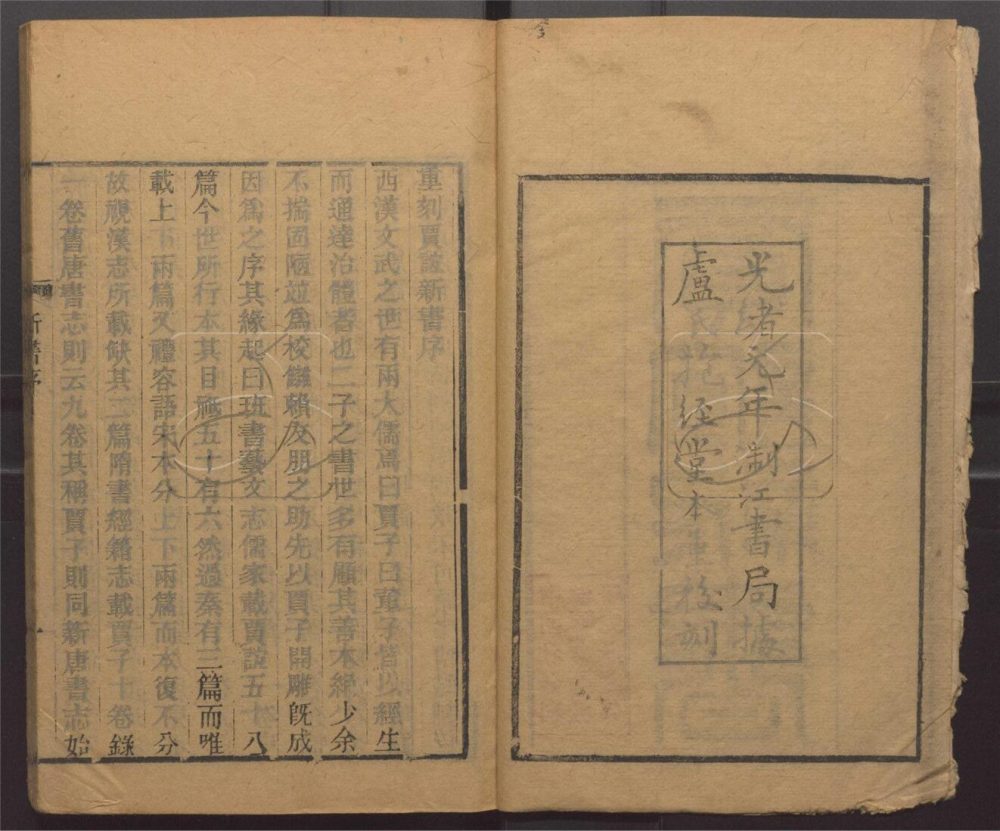 光緒元年浙江書局據
盧氏抱經堂本重校刻
重刻賈誼新書序
西漢文武之世有兩大儒焉曰賈子曰董子皆以經生
而通達治體者也二子之書世多有顧其善本絕少余
不揣固陋竝爲校讎賴友朋之助先以賈子開雕旣成
因爲之序其緣起曰班書藝文志儒家載賈誼五十八
篇今世所行本其目祇五十有六然過秦有三篇而唯
載上下兩篇又禮容語宋本分上下兩篇而本復不分
故視漢志所載缺其二篇隋書經籍志載賈子十卷錄
一卷舊唐書志則云九卷其稱賈子則同新唐書志始
新書序
一